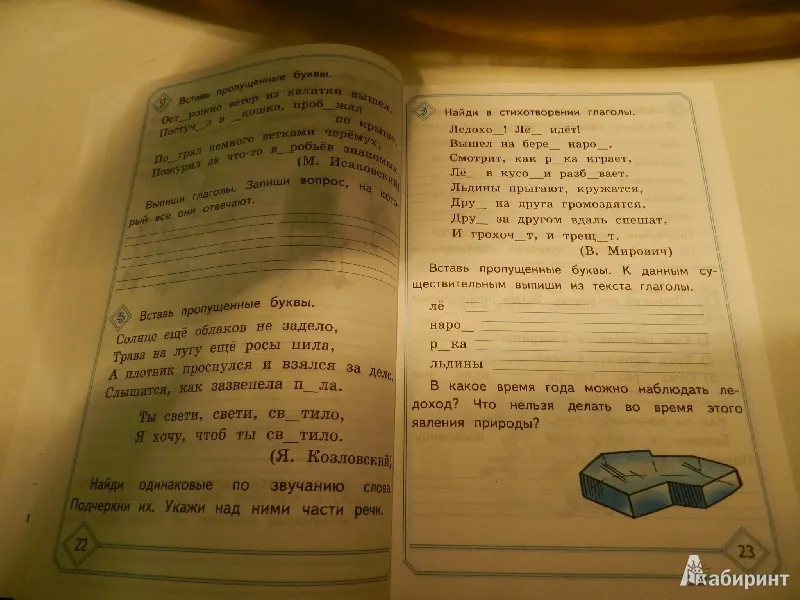 Вставь пропущенные буквы.
Ост_рожно ветер из калитки вышел,
Постуч_л в _кошко, проб_жал
по крыше,
По_грал немного ветками черёмух,
Пожурил за что-то в_робьёв знакомых.
(М. Исаковский)
Выпиши глаголы. Запиши вопрос, на кото-
рый все они отвечают.
Вставь пропущенные буквы.
Солнце ещё облаков не задело,
Трава на лугу ещё росы пила,
А плотник проснулся и взялся за дело,
Слышится, как зазвенела п_ла.
Ты свети, свети, св_тило,
Я хочу, чтоб ты св_тило.
(Я. Козловский)
Найди одинаковые по звучанию слова.
Подчеркни их. Укажи над ними части речи.
22
Найди в стихотворении глаголы.
Ледохо_! Лё_ идёт!
Вышел на бере_ наро_.
Смотрит, как р_ка играет,
Лё_ в кусо_и разб_вает.
Льдины прыгают, кружатся,
Дру_ на друга громоздятся,
Дру_ за другом вдаль спешат,
И грохоч_т, и трещ_т.
(В. Мирович)
Вставь пропущенные буквы. К данным су-
ществительным выпиши из текста глаголы.
лё_
наро_
р_ка
льдины
В какое время года можно наблюдать ле-
доход? Что нельзя делать во время этого
явления природы?
23
Лабиринт